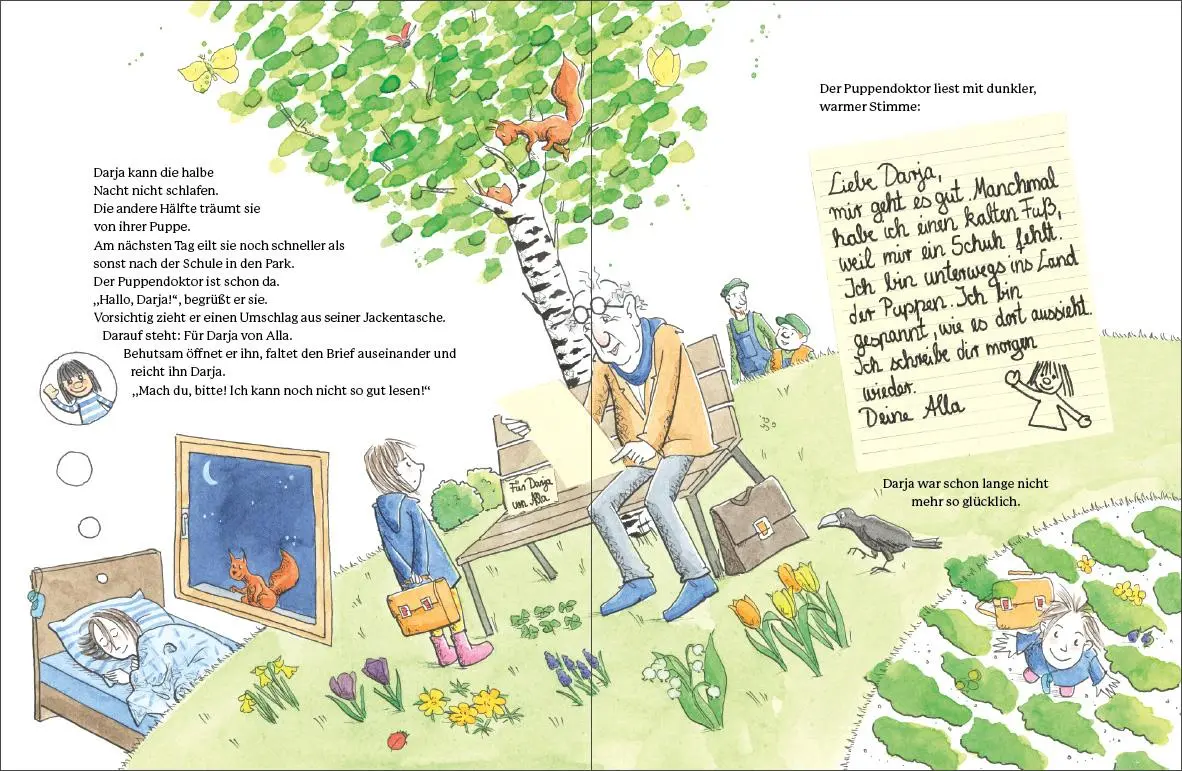 Darja kann die halbe
Nacht nicht schlafen.
Die andere Hälfte träumt sie
von ihrer Puppe.
Am nächsten Tag eilt sie noch schneller als
sonst nach der Schule in den Park.
Der Puppendoktor ist schon da.
„Hallo, Darja!“, begrüßt er sie.
Vorsichtig zieht er einen Umschlag aus seiner Jackentasche.
Darauf steht: Für Darja von Alla.
Behutsam öffnet er ihn, faltet den Brief auseinander und
reicht ihn Darja.
„Mach du, bitte! Ich kann noch nicht so gut lesen!“
Für Darja
von Alla
Der Puppendoktor liest mit dunkler,
warmer Stimme:
Liebe Darja,
mir geht es gut. Manchmal
habe ich einen kalten Fuß,
weil mir ein Schuh fehlt.
Ich bin unterwegs ins Land
der Puppen. Ich bin
gespannt, wie es dort aussieht.
Ich schreibe dir morgen
wieder.
Deine Alla
Darja war schon lange nicht
mehr so glücklich.